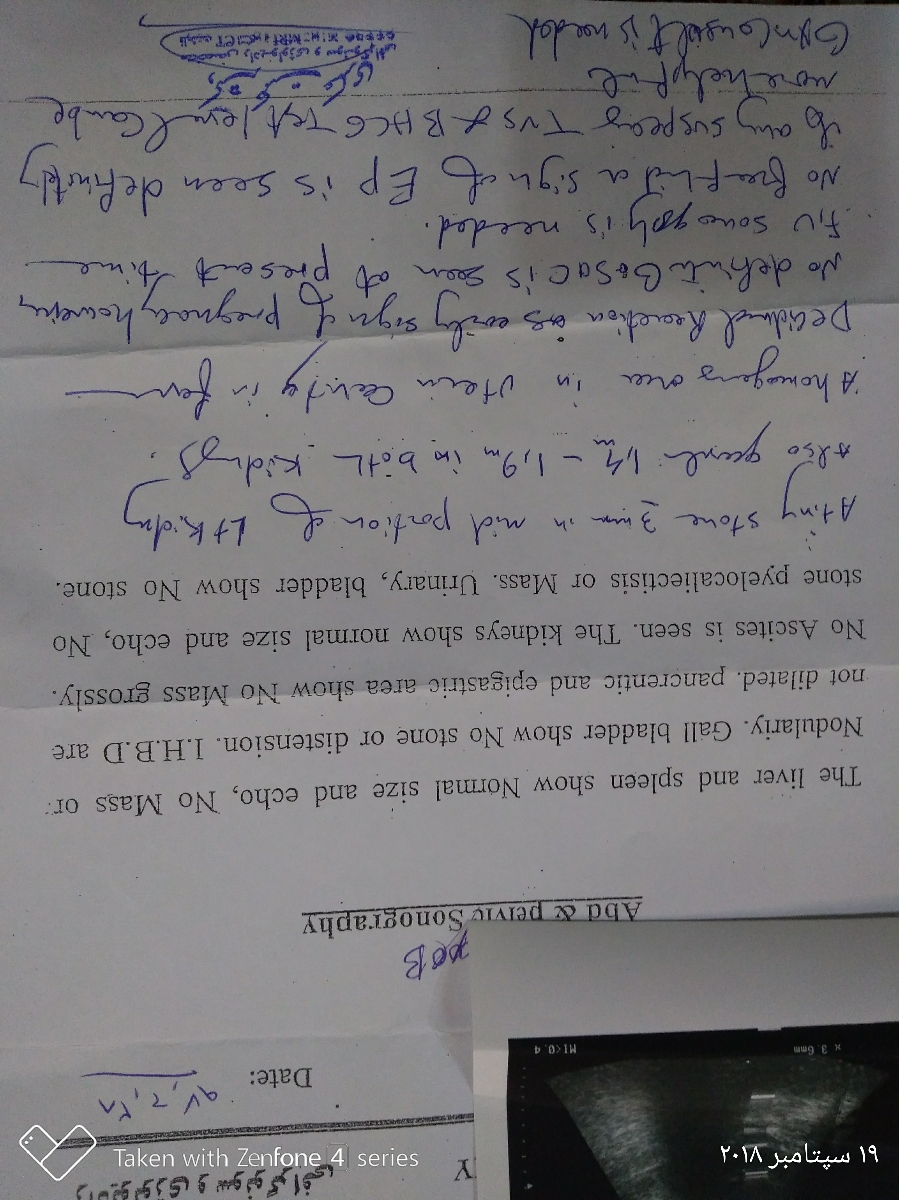 Date: ۹۷,۶,۲۸
Abd & pelvic Sonography
The liver and spleen show Normal size and echo, No Mass or
Nodulariy. Gall bladder show No stone or distension. I.H.B.D are
not dilated. pancrentic and epigastric area show No Mass grossly.
No Ascites is seen. The kidneys show normal size and echo, No
stone pyelocaliectisis or Mass. Urinary, bladder show No stone.
A tiny stone 3mm in mid portion of Lt Kidny
Also in both Kidnys.
A homogens area in Uterin Cavity in favor
Decidual Reaction as early sign of pregnancy however
No definit G.Sac is seen at present time
F/U sonography is needed.
No free fluid or sign of Ep is seen definitely
If any suspecious TVS & BHCG Test level Can be
more helpful
GYN Consult is needed
x 3.6mm
MI<0.4
Taken with Zenfone 4 series
۱۹ سپتامبر ۲۰۱۸